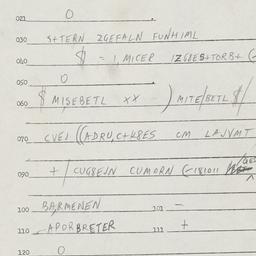 021 O
030 S+TERN ZGEFALN FUNHIML
040 $ = 1, MICER IZGLES+TORB+ (
050 O
060 $ MISEBETL XX - ) MITE/BETL $/
070 CVEJ ((ADRU,C+L8ES CM LAJVMT
090 + / CUG8EJN CUMORN (-181011
100 BARMENEN 101 -
110 APORBRETER 111 +
120 O